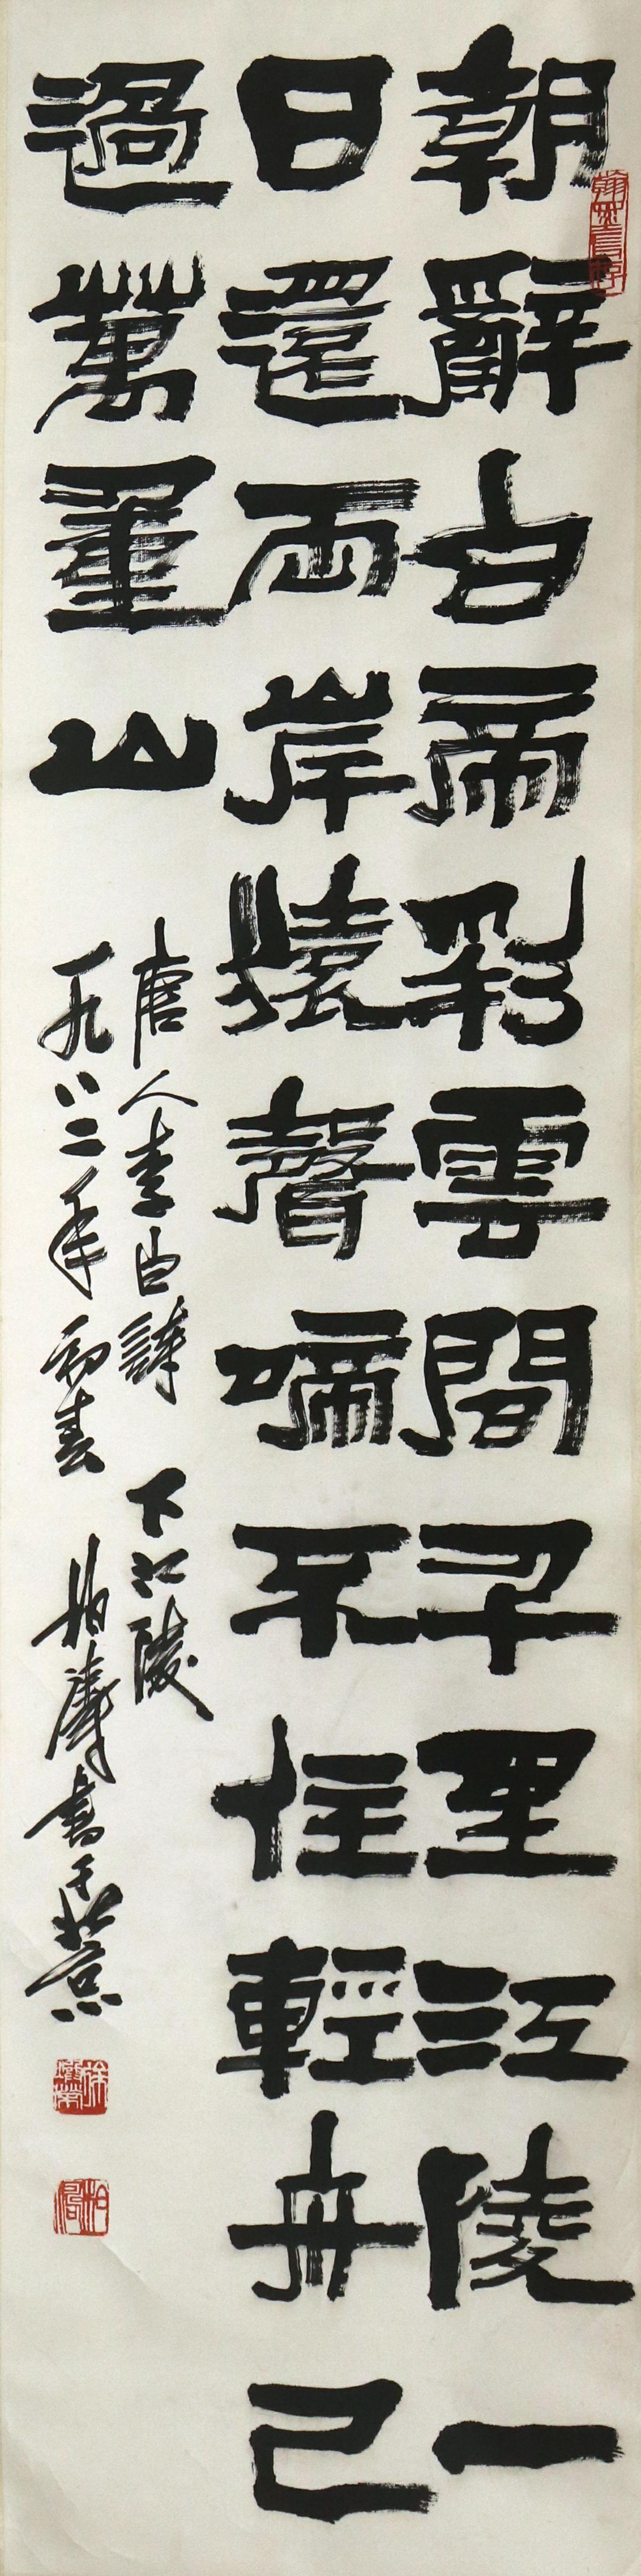 朝辭白帝彩雲間千里江陵一
日還兩岸猿聲啼不住輕舟已
過萬重山
唐人李白詩 下江陵
一九八二年初春 柏濤書于北京
徐煥榮